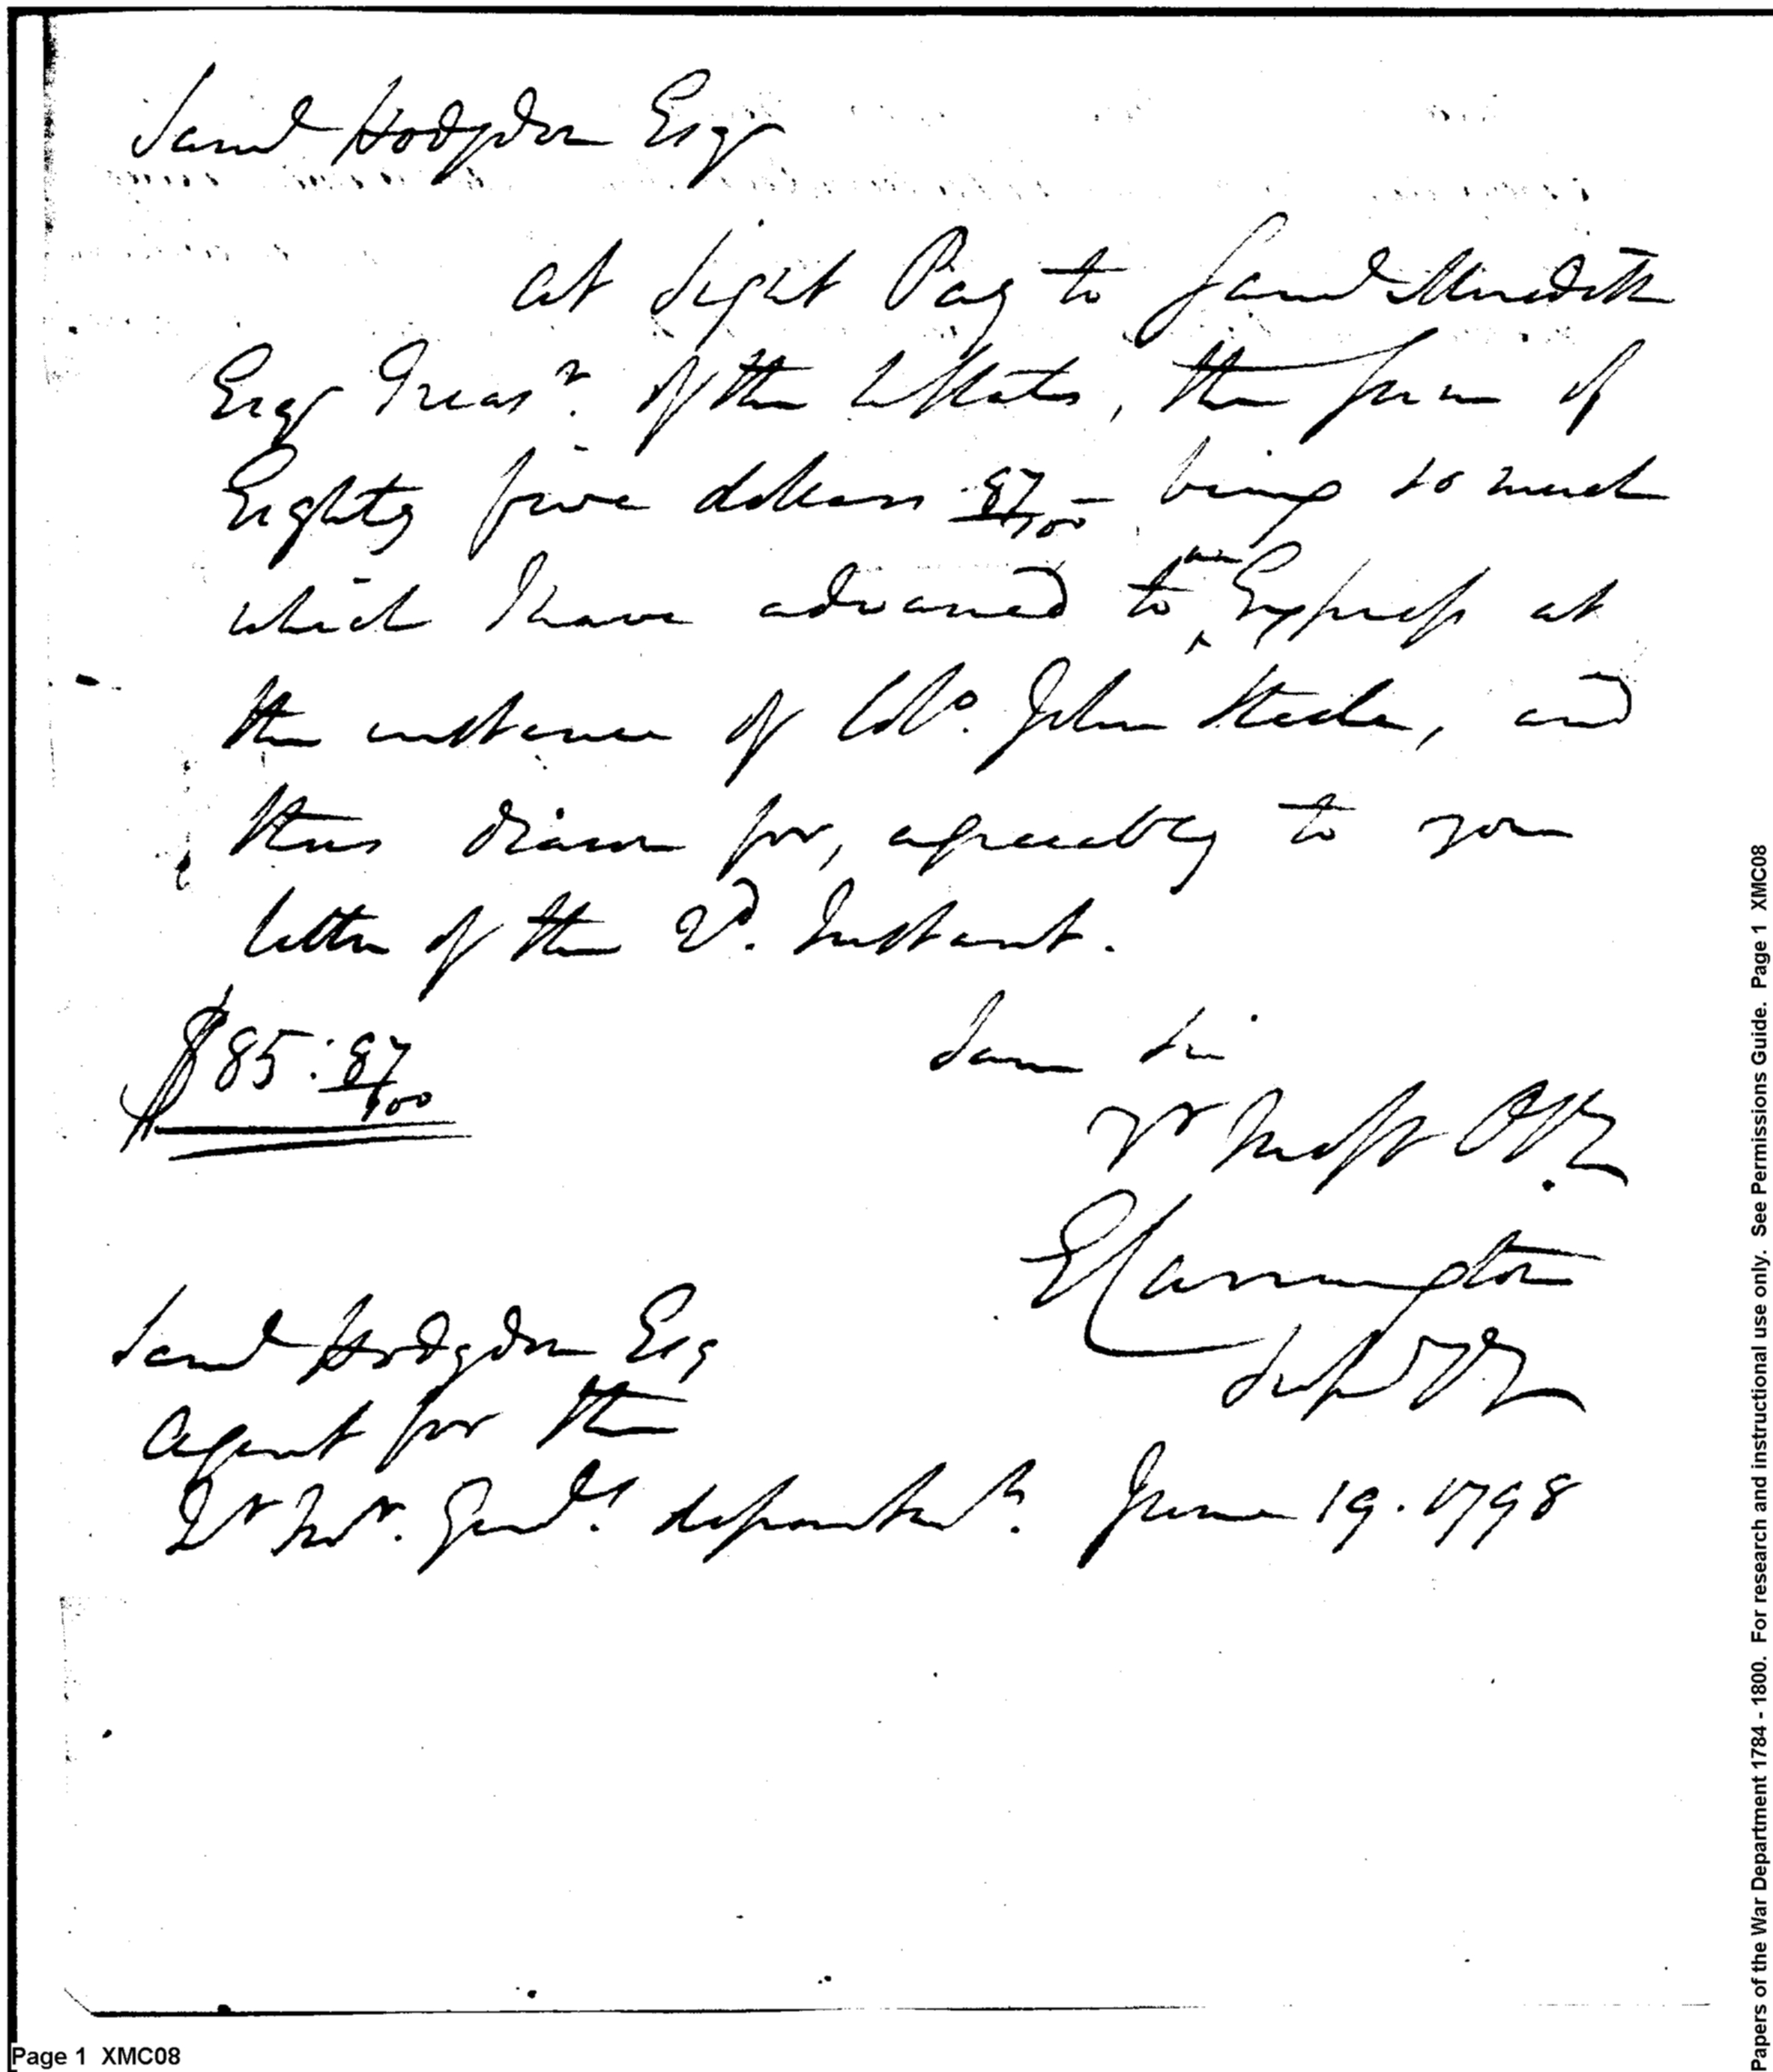 Saml Hodgdon Esqr
At sight Pay to Saml Meredith
Esqr Treasr. of the U States, the sum of
Eighty five dollars 87/100 - being so much
which I have advanced to an Express at
the instance of Colo. John Steele, and
thus drawn for, agreeably to your
letter of the 2d. Instant.
$85:87/100
I am Sir
Yr Most Ob.
E Carrington
Saml Hodgdon Esq
Agent for the
Qr Mr. Genls. departmt. June 19. 1798
Page 1 XMC08
Papers of the War Department 1784 - 1800. For research and instructional use only. See Permissions Guide. Page 1 XMC08